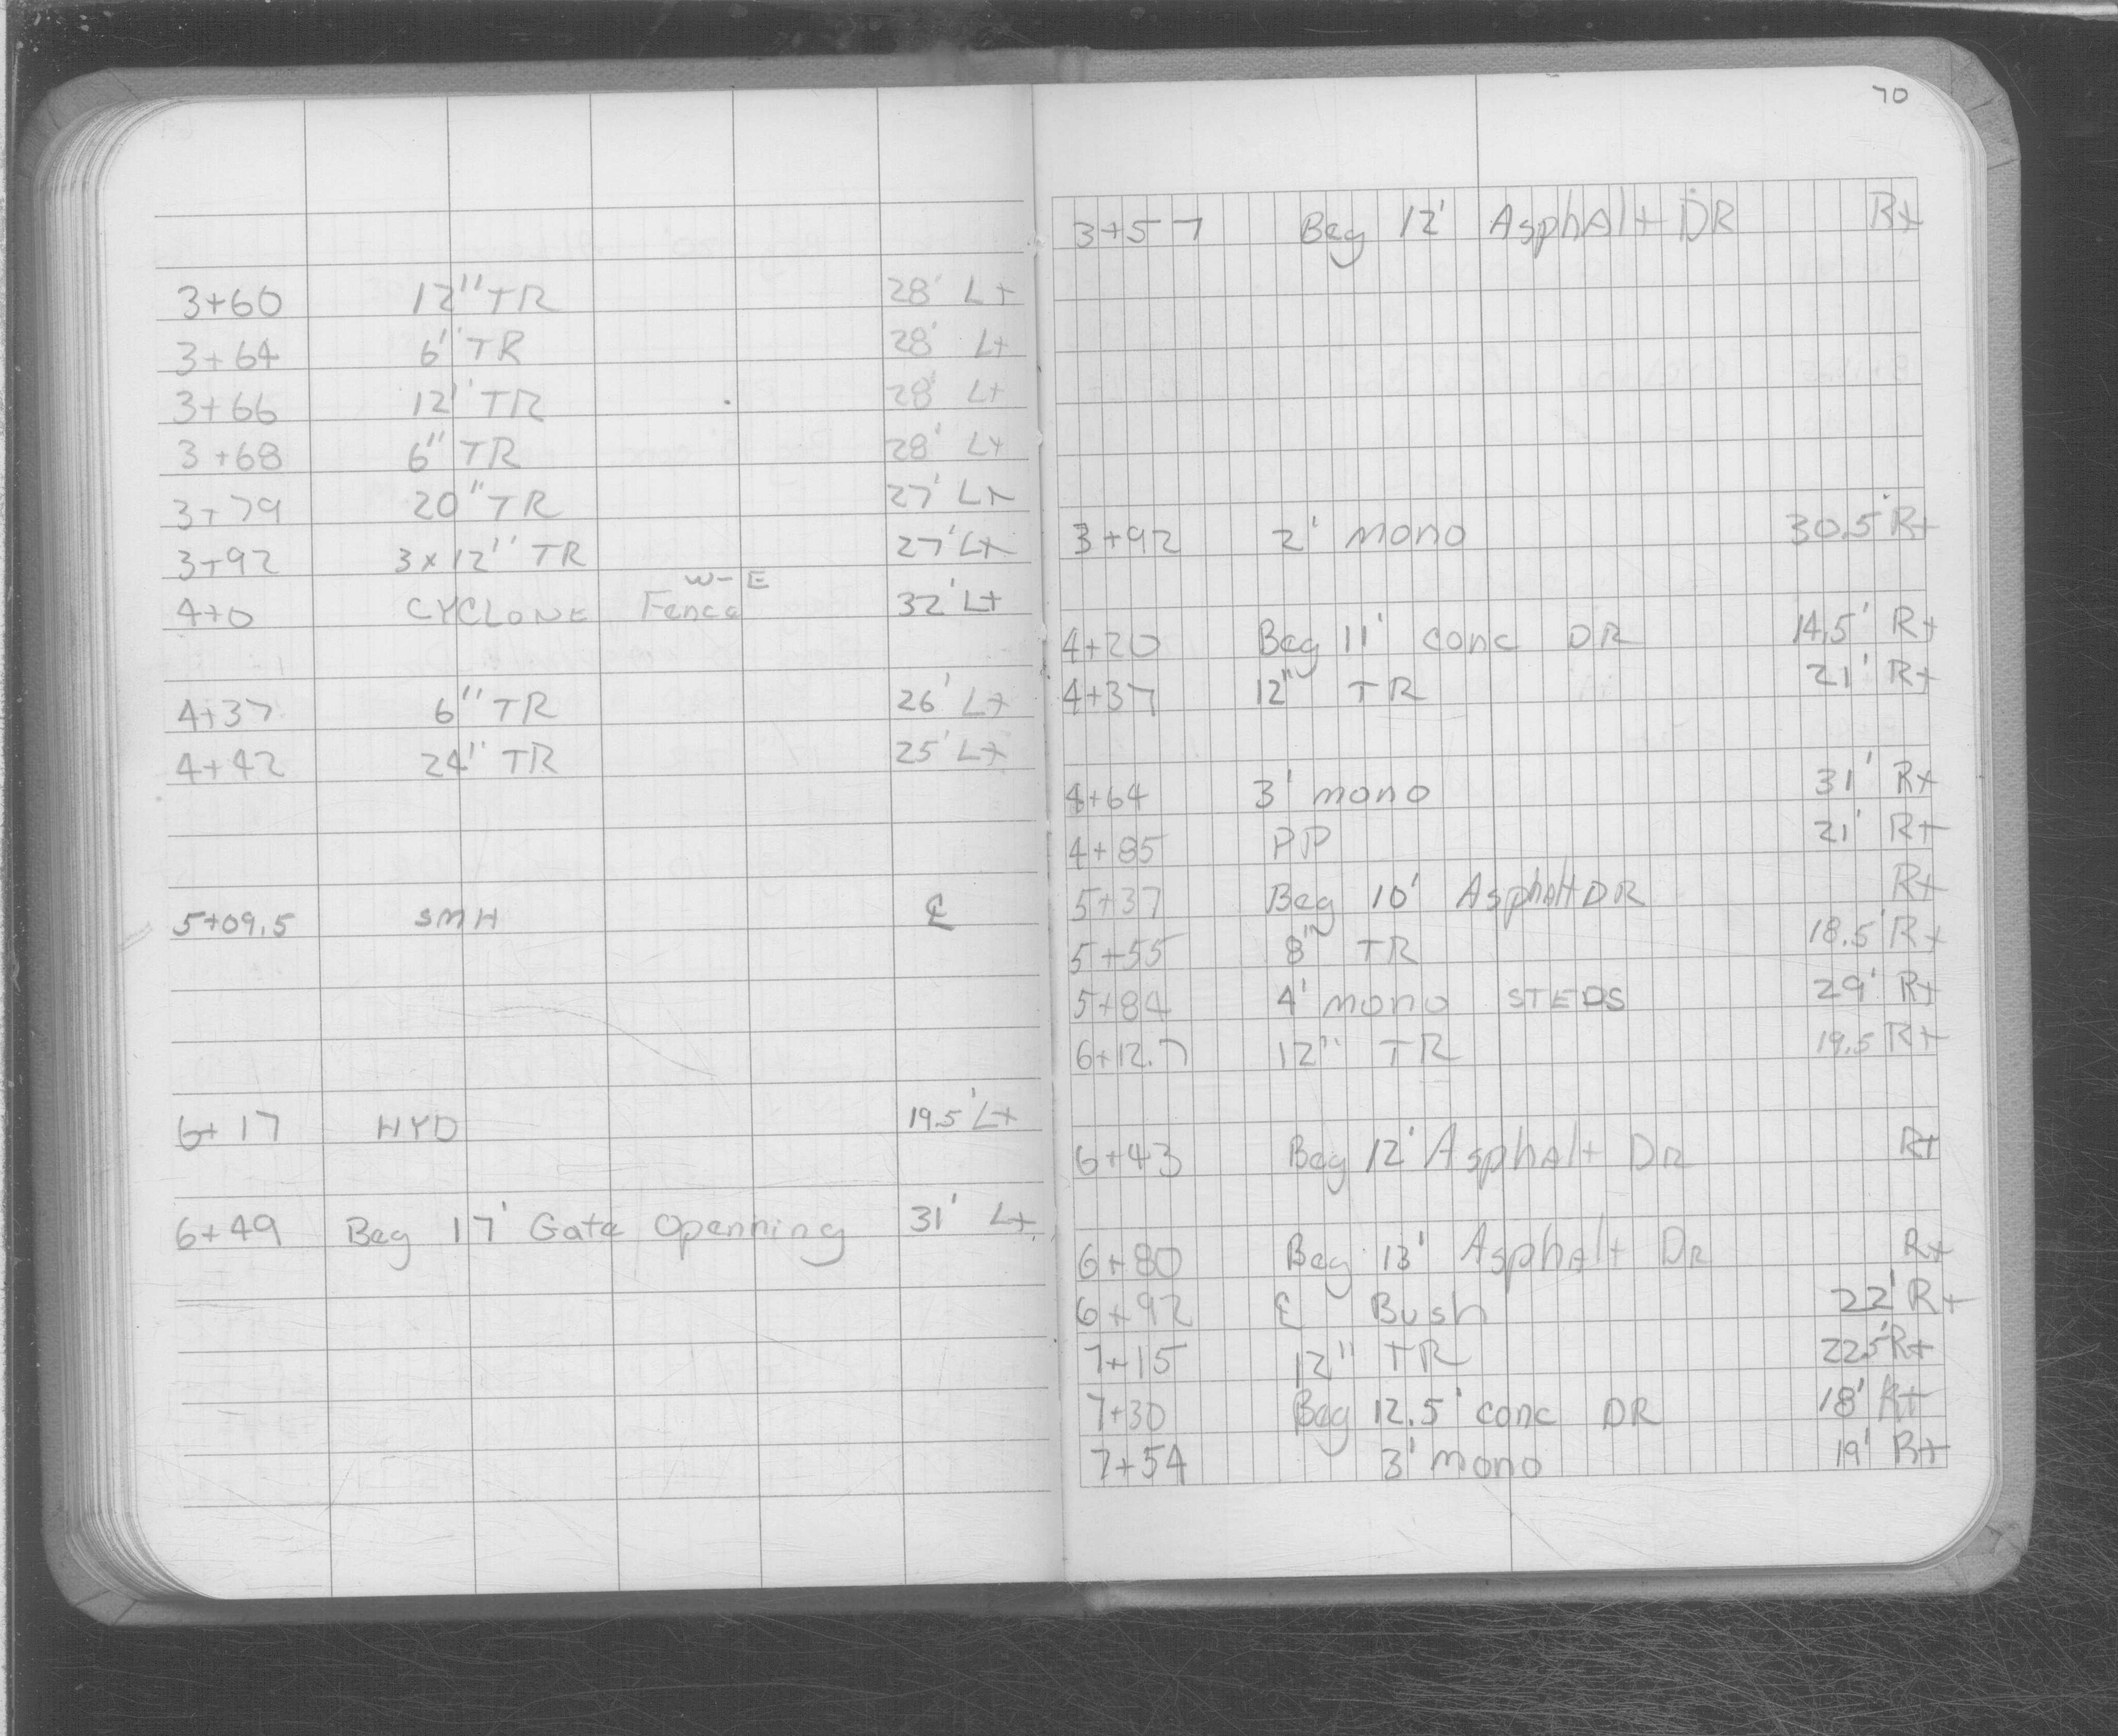 3+60 12" TR 28' Lt
3+64 6" TR 28' Lt
3+66 12" TR 28' Lt
3+68 6" TR 28' Lt
3+79 20" TR 27' Lt
3+92 3x12" TR 27' Lt
W-E
4+0 CYCLONE Fence 32' Lt
4+37 6" TR 26' Lt
4+42 24" TR 25' Lt
5+09.5 SMH ℄
6+17 HYD 19.5' Lt
6+49 Beg 17' Gate Openning 31' Lt
70
3+57 Beg 12' Asphalt DR Rt
3+92 2' mono 30.5' Rt
4+20 Beg 11' conc DR 14.5' Rt
4+37 12" TR 21' Rt
4+64 3' mono 31' Rt
4+85 PP 21' Rt
5+37 Beg 10' Asphalt DR Rt
5+55 8" TR 18.5' Rt
5+84 4' mono STEPS 29' Rt
6+12.7 12" TR 19.5 Rt
6+43 Beg 12' Asphalt DR Rt
6+80 Beg 13' Asphalt DR Rt
6+92 ℄ Bush 22' Rt
7+15 12" TR 22.5' Rt
7+30 Beg 12.5' conc DR 18' Rt
7+54 3' mono 19' Rt